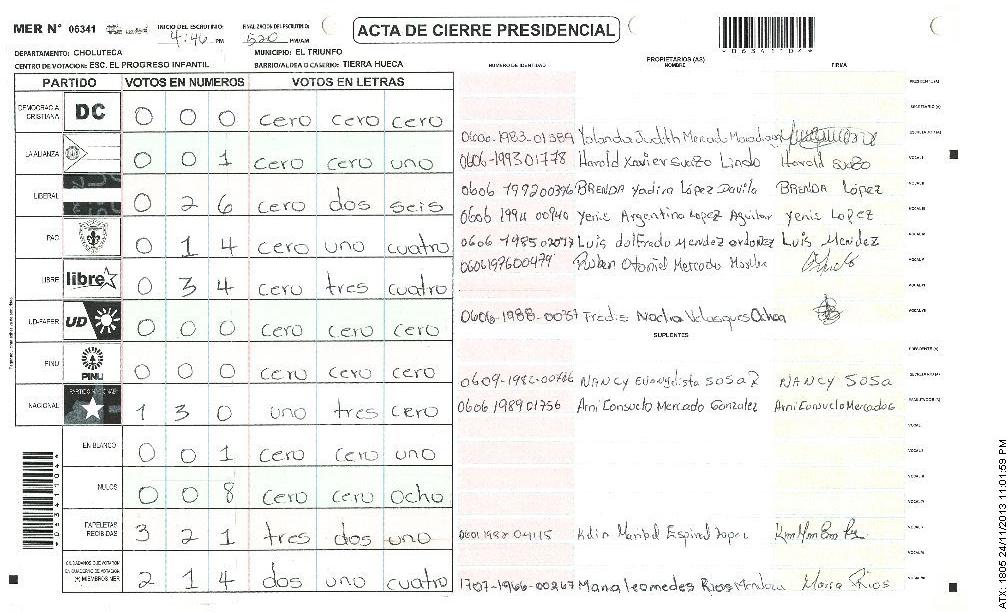 MER N° 06341 INICIO DEL ESCRUTINIO: 4:46 PM FINALIZACION DEL ESCRUTINIO: 520 PM/AM
ACTA DE CIERRE PRESIDENCIAL
DEPARTAMENTO: CHOLUTECA MUNICIPIO: EL TRIUNFO
CENTRO DE VOTACION: ESC. EL PROGRESO INFANTIL BARRIO/ALDEA O CASERIO: TIERRA HUECA
PARTIDO VOTOS EN NUMEROS VOTOS EN LETRAS
DEMOCRACIA CRISTIANA DC 0 0 0 cero cero cero
LA ALIANZA 0 0 1 cero cero uno
LIBERAL 0 2 6 cero dos seis
PAC 0 1 4 cero uno cuatro
LIBRE libre 0 3 4 cero tres cuatro
UD-FAPER UD 0 0 0 cero cero cero
PINU PINU 0 0 0 cero cero cero
NACIONAL 1 3 0 uno tres cero
EN BLANCO 0 0 1 cero cero uno
NULOS 0 0 8 cero cero ocho
PAPELETAS RECIBIDAS 3 2 1 tres dos uno
CIUDADANOS QUE VOTARON EN CUADERNO DE VOTACION (+) MIEMBROS MER 2 1 4 dos uno cuatro
NUMERO DE IDENTIDAD PROPIETARIOS (AS) NOMBRE FIRMA
PRESIDENTE(A)
SECRETARIO (A)
0606-1983-01389 Yolanda Judith Mercado
0606-1993 01778 Harold Xavier Suazo Lindo Harold Suazo VOCAL I
0606 199200396 BRENDA Yadira López Davila BRENDA López VOCAL II
0606 1994 00940 Yenis Argentina Lopez Aguilar Yenis Lopez VOCAL III
0606 1985 02077 Luis dolfredo Mendez ordoñez Luis Mendez VOCAL IV
0606197600479 Ruben Otoniel Mercado VOCAL V
VOCAL VI
0606-1988-00357 Fredis Velasques Ochoa VOCAL VII
SUPLENTES
PRESIDENTE (A)
0609-1982-00786 NANCY Evangelista SOSA R NANCY SOSA SECRETARIO(A)
0606 1989 01756 Arni Consuelo Mercado Gonzalez Arni Consuelo Mercado G
VOCAL I
VOCAL II
VOCAL III
VOCAL IV
0601 1982 04115 Maribel Espinal Lopez VOCAL V
VOCAL VI
1707-1966-00267 Maria leomedes Rios Mendoza Maria Rios VOCAL VII
ATX: 1805 24/11/2013 11:01:59 PM